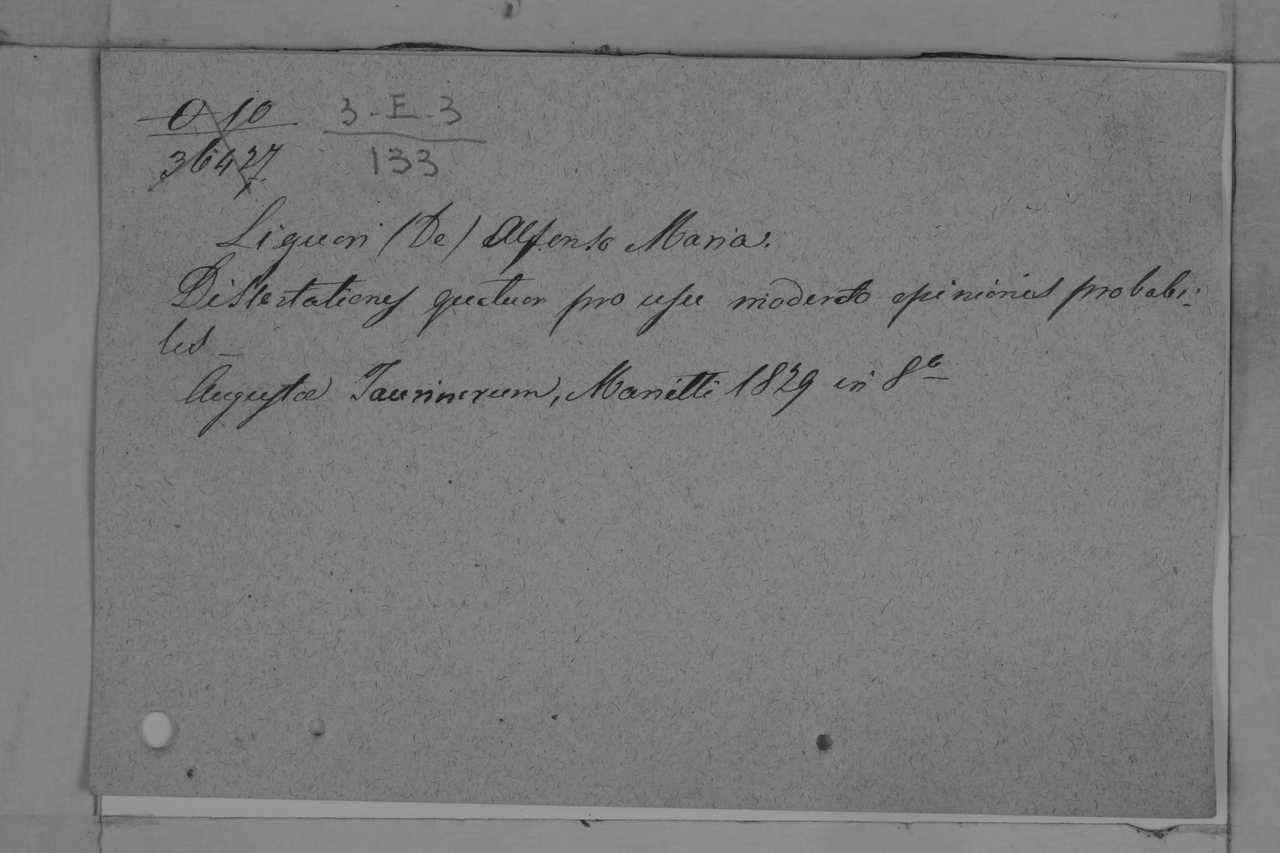 O 10 3-E-3
36427 133
Liguori (De) Alfonso Maria.
Dissertationes quatuor pro usu moderato opinionis probabi-
lis _
Augustæ Taurinorum, Marietti 1829 in 8º